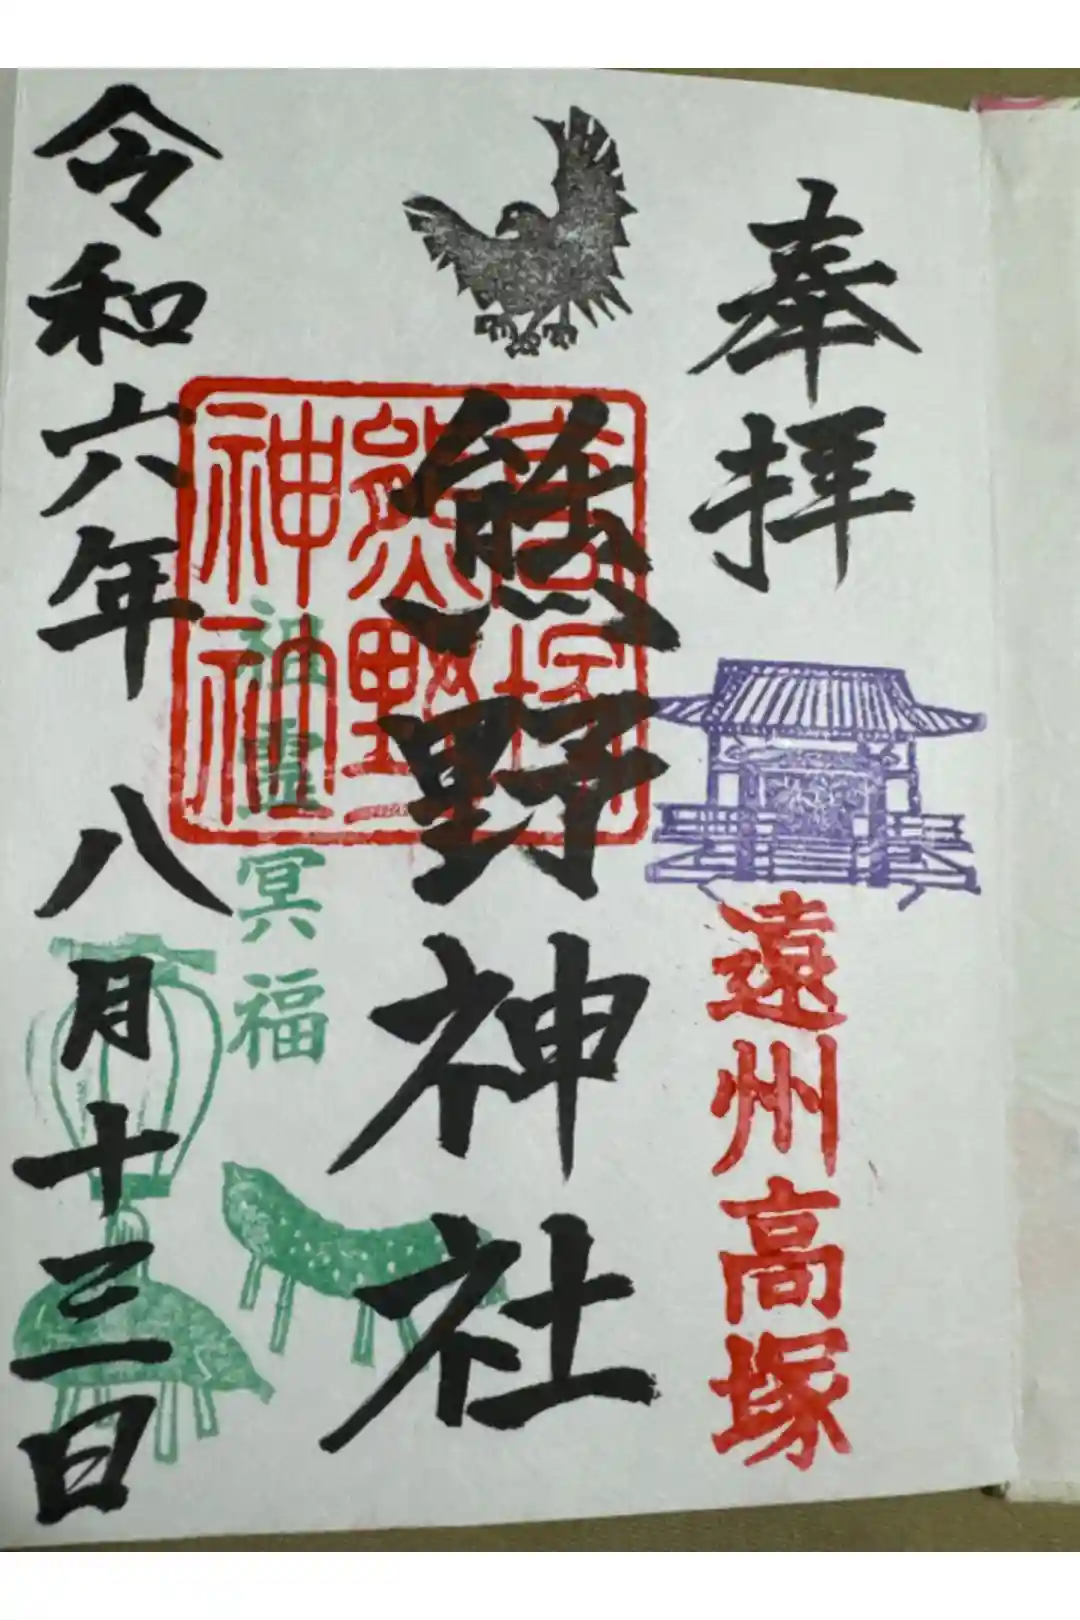 奉拝
遠州高塚
熊野神社
高塚
熊野
神社
祖霊冥福
令和六年八月十三日